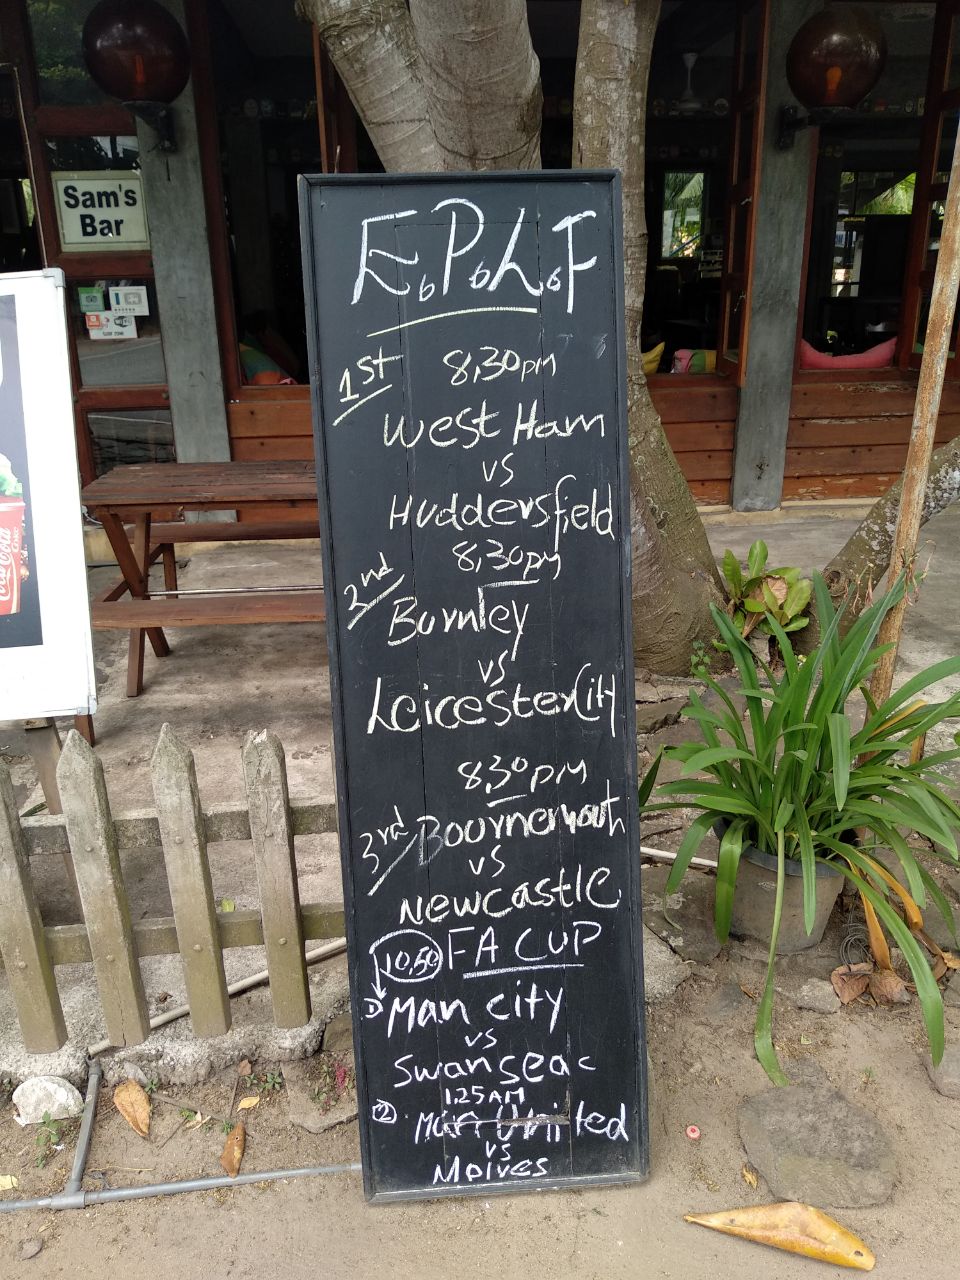 Sam's
Bar
E.P.L.F
1ST 8,30pm
West Ham
vs
Huddersfield
8,30pm
2nd
Burnley
vs
Leicester City
8,30pm
3rd Bournemouth
vs
Newcastle
10,50 FA CUP
Man city
vs
Swansea c
1.25AM
2 Man United
vs
Molves
Coca-Cola